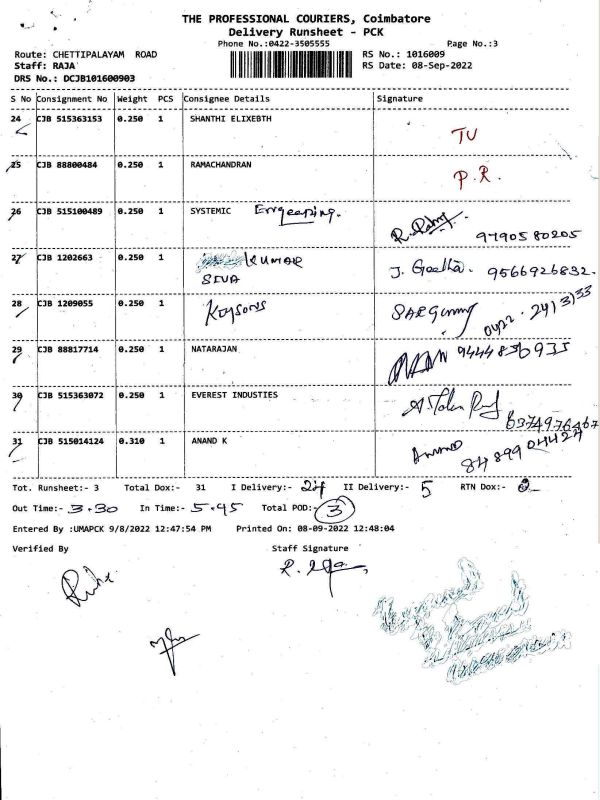 THE PROFESSIONAL COURIERS, Coimbatore
Delivery Runsheet - PCK
Phone No.:0422-3505555 Page No.:3
Route: CHETTIPALAYAM ROAD RS No.: 1016009
Staff: RAJA RS Date: 08-Sep-2022
DRS No.: DCJB101600903
S No Consignment No Weight PCS Consignee Details Signature
24 CJB 515363153 0.250 1 SHANTHI ELIXEBTH
TU
25 CJB 88800484 0.250 1 RAMACHANDRAN
P.R.
26 CJB 515100489 0.250 1 SYSTEMIC Engeering.
9790580205
27 CJB 1202663 0.250 1 KUMAR J. Geetha. 9566926832.
SIVA
28 CJB 1209055 0.250 1 Koysons
0422-2413133
29 CJB 88817714 0.250 1 NATARAJAN
9444836935
30 CJB 515363072 0.250 1 EVEREST INDUSTIES
6374976467
31 CJB 515014124 0.310 1 ANAND K Anand
84 899 04424
Tot. Runsheet:- 3 Total Dox:- 31 I Delivery:- 24 II Delivery:- 5 RTN Dox:- 2
Out Time:- 3.30 In Time:- 5.45 Total POD:- 3
Entered By :UMAPCK 9/8/2022 12:47:54 PM Printed On: 08-09-2022 12:48:04
Verified By Staff Signature